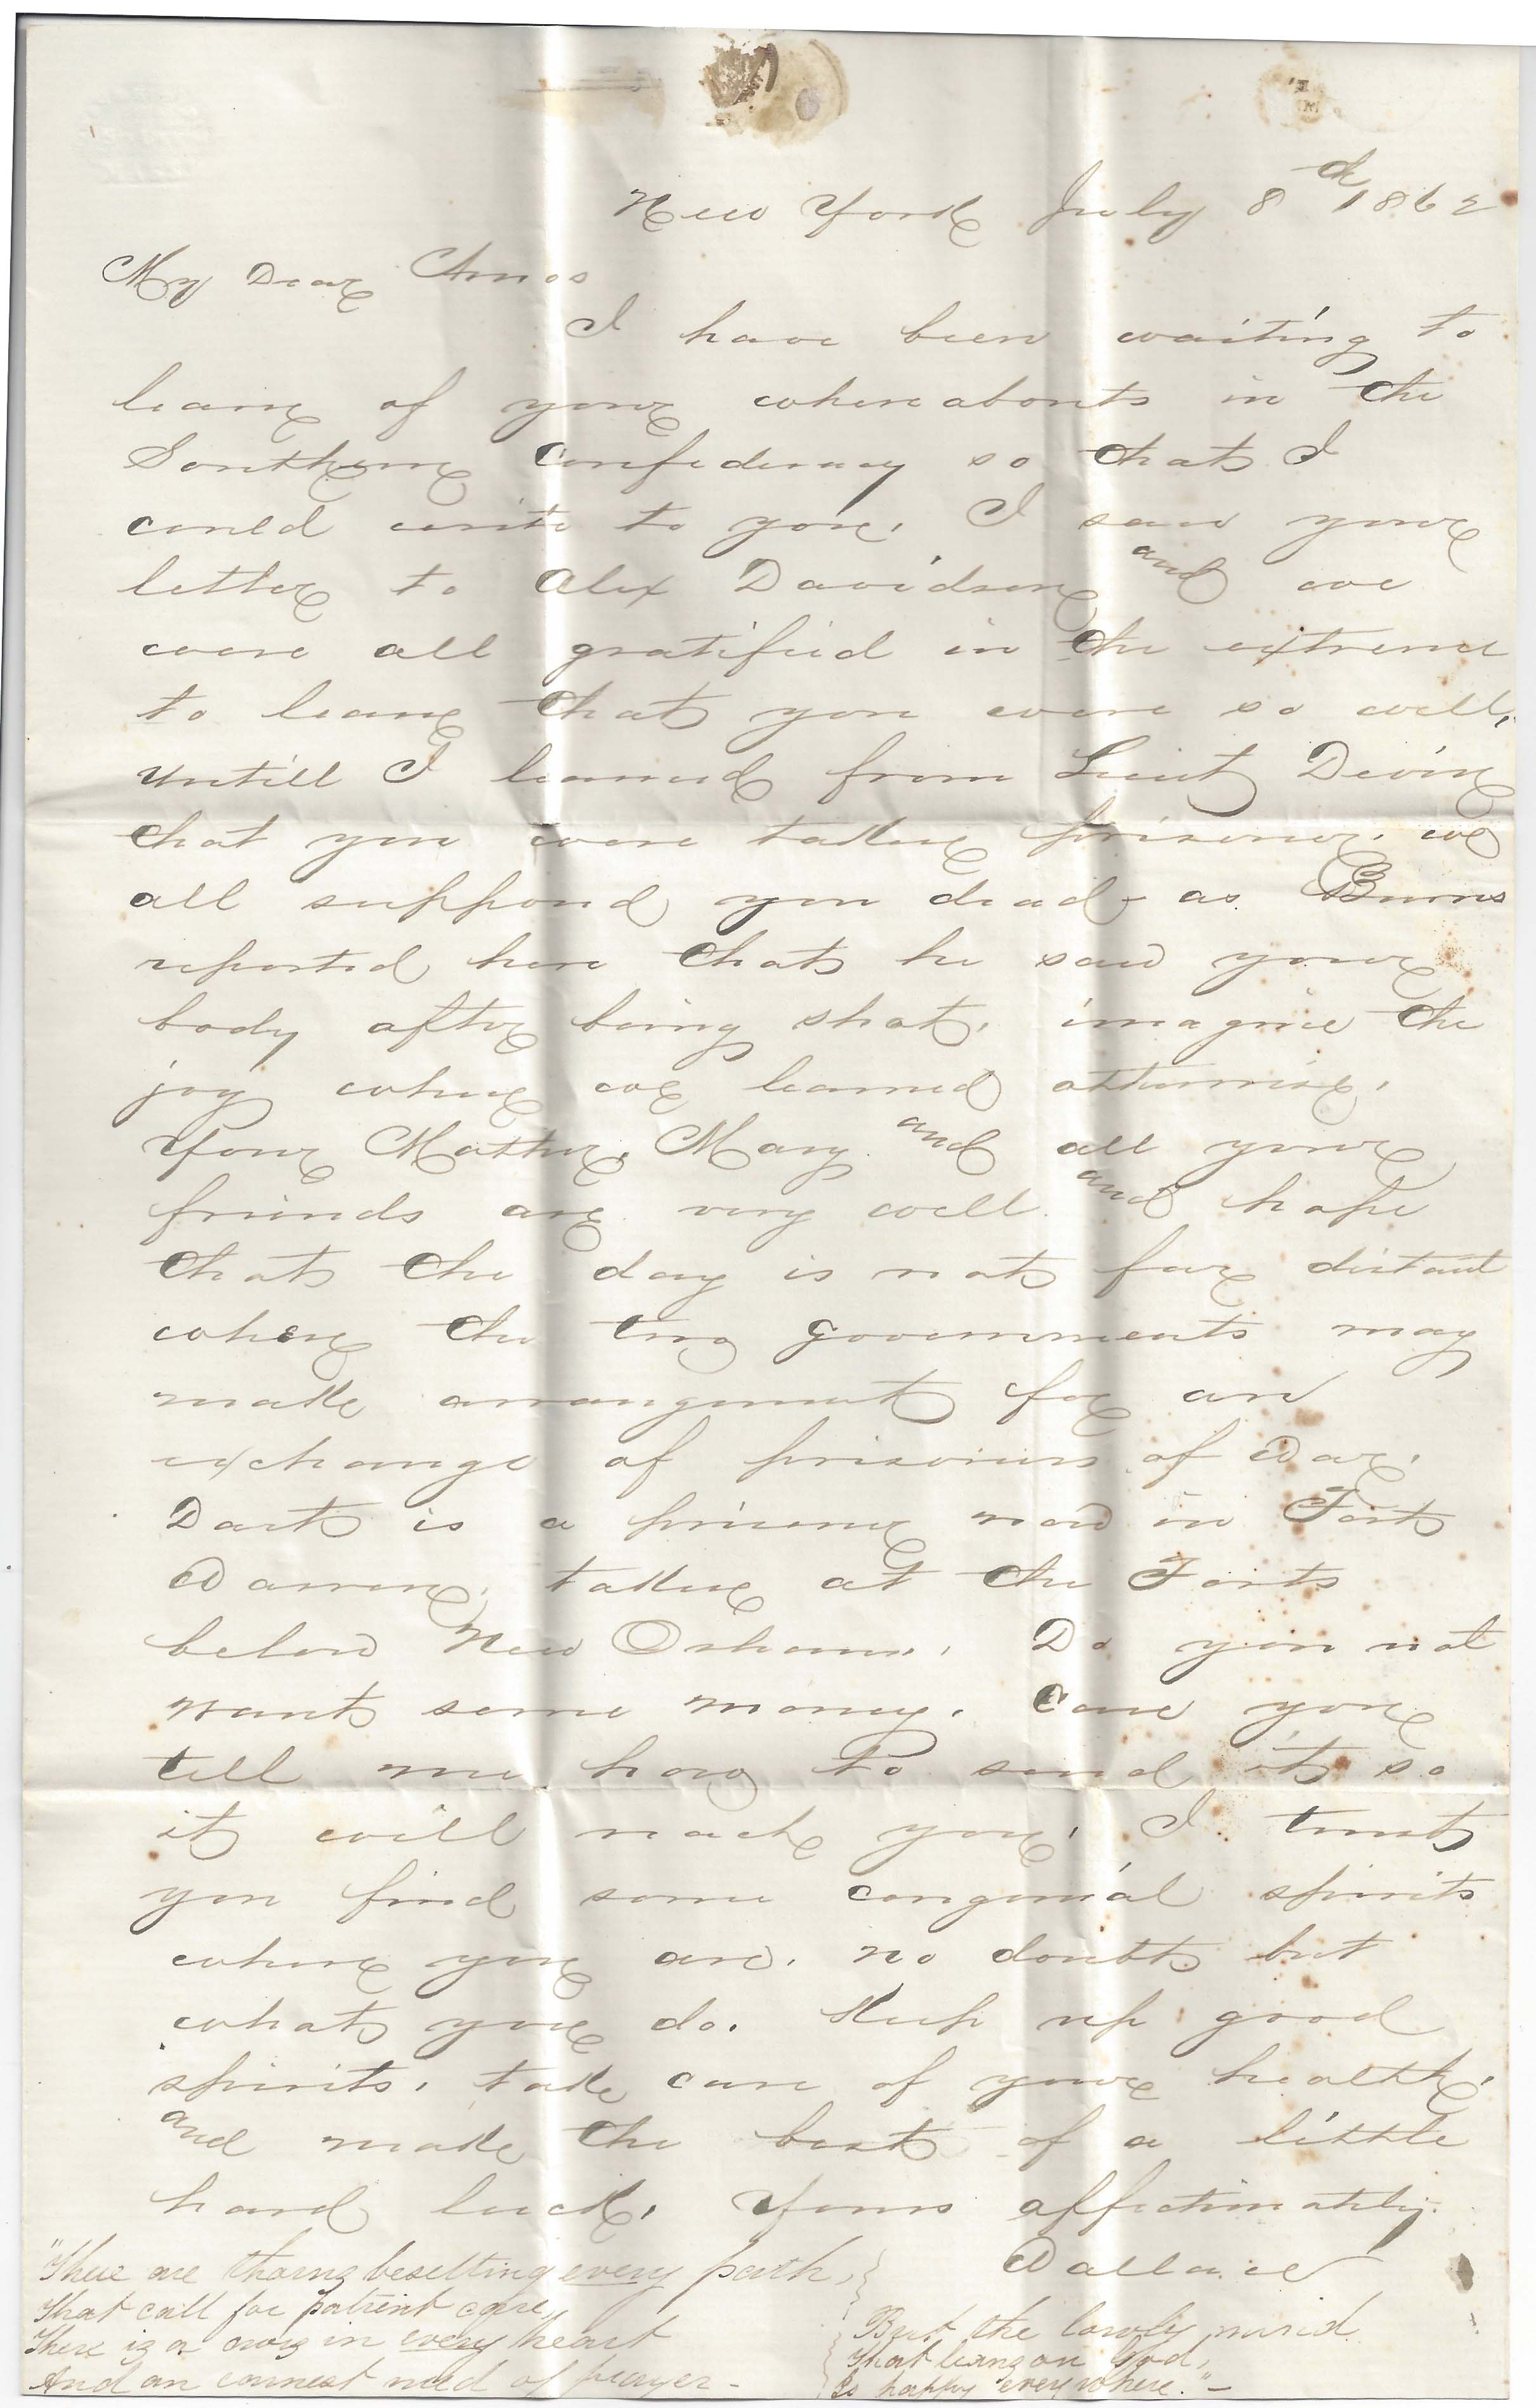 New York July 8th 1862
My Dear Amos
I have been waiting to
learn of your whereabouts in the
Southern Confederacy so that I
could write to you. I saw your
letter to Alex Davidson and we
were all gratified in the extreme
to learn that you were so well,
untill I learned from Lieut Devin
that you were taken prisoner. we
all supposed you dead - as Burns
reported here that he saw your
body after being shot. imagine the
joy when we learned otherwise.
Your Mother, Mary and all your
friends are very well and hope
that the day is not far distant
when the two governments may
make arrangement for an
exchange of prisoners of War.
Dart is a prisoner now in Fort
Warren, taken at the Forts
below New Orleans. Do you not
want some money. Can you
tell me how to send it so
it will reach you. I trust
you find some congenial spirits
where you are. no doubt but
what you do. Keep up good
spirits, take care of your health,
and make the best of a little
hard luck. Yours affectionately
Wallace
"There are thorns besetting every path,
That call for patient care,
There is a cross in every heart
And an earnest need of prayer -
But the lowly mind
That leans on God,
Is happy every where." -